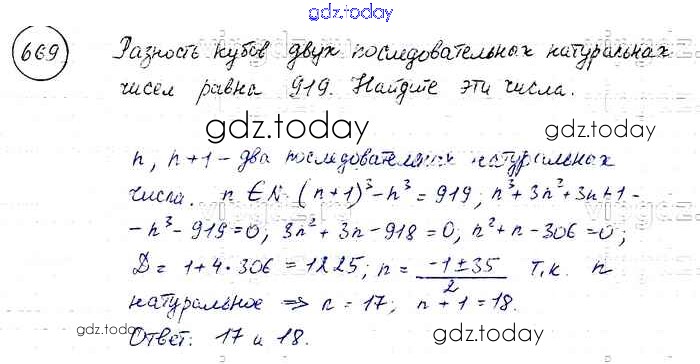 gdz.today
669 Разность кубов двух последовательных натуральных
чисел равна 919. Найдите эти числа.
gdz.today
gdz.today
n, n+1 – два последовательных натуральных
числа. n ∈ N. (n+1)³ - n³ = 919; n³+3n²+3n+1-
-n³-919=0; 3n²+3n-918=0; n²+n-306=0;
D = 1+4·306 = 1225; n = (-1±35)/2 т.к. n
натуральное ⇒ n = 17; n+1=18.
gdz.today
gdz.today
Ответ: 17 и 18.